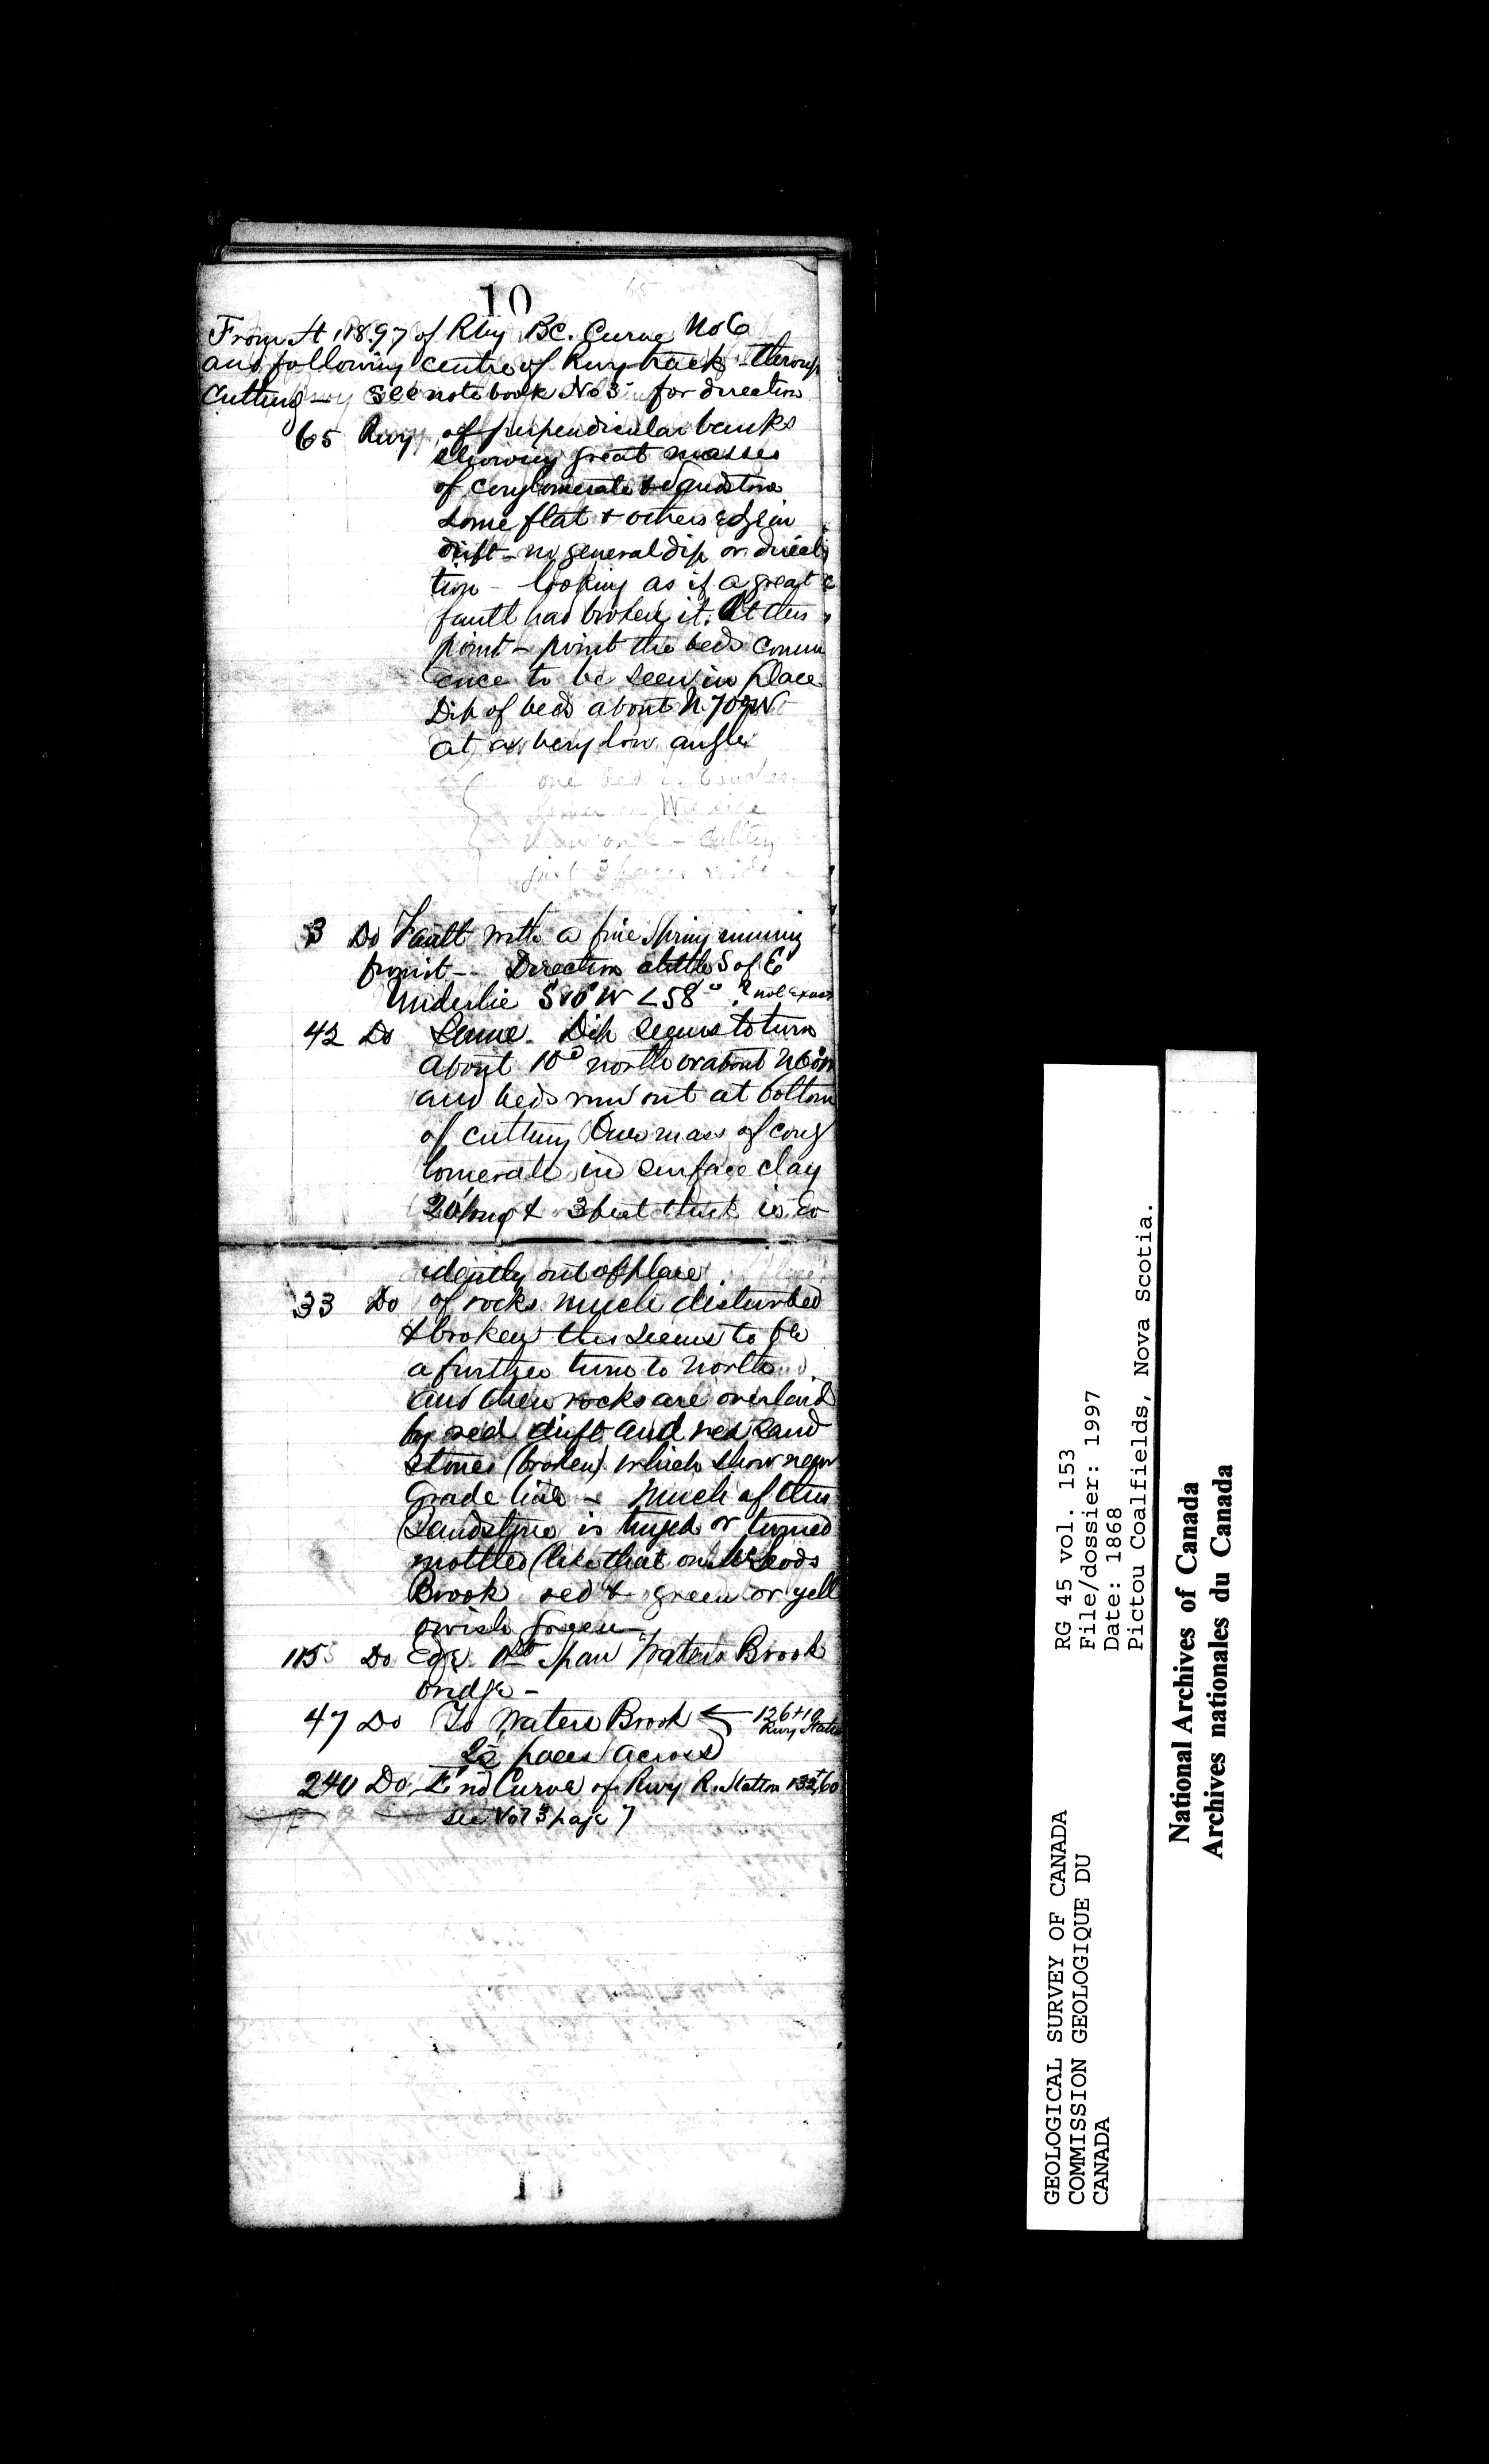 10
From St 118.97 of Rwy BC. Curve No 6
and following centre of Rwy track through
Cutting – see note book No 3 for direction
65 Rwy of perpendicular banks
showing great masses
of conglomerate & sandstone
some flat & others edge in
drift – no general dip or direc
tion – looking as if a great
fault had broken it. At this
point – point the beds comm
ence to be seen in place
Dip of beds about N 70° W
at a very low angle
one bed is 6 inches
lower on W side
than on E – cutting
just 3 paces wide
3 Do Fault with a fine spring running
from it – Direction a little S of E
Underlie S 10° W < 58° ? not exact
42 Do Same. Dip seems to turn
about 10° north or about N 60 W
and beds run out at bottom
of cutting One mass of cong
lomerate in surface clay
20' long & 3 feet thick is ev
idently out of place
33 Do of rocks much disturbed
& broken there seems to be
a further turn to north
and then rocks are overlaid
by red drift and red sand
stones (broken) which show near
Grade line – Much of this
Sandstone is tinged or turned
mottled (like that on McLeods
Brook red & green or yell
owish green
115 Do Edge 1st span Waters Brook
bridge –
47 Do To Waters Brook ← 126+10
Rwy Station
2½ paces across
240 Do End Curve of Rwy R. Station 132+60
see Vol 3 page 7
10
GEOLOGICAL SURVEY OF CANADA
COMMISSION GEOLOGIQUE DU
CANADA
RG 45 vol. 153
File/dossier: 1997
Date: 1868
Pictou Coalfields, Nova Scotia.
National Archives of Canada
Archives nationales du Canada